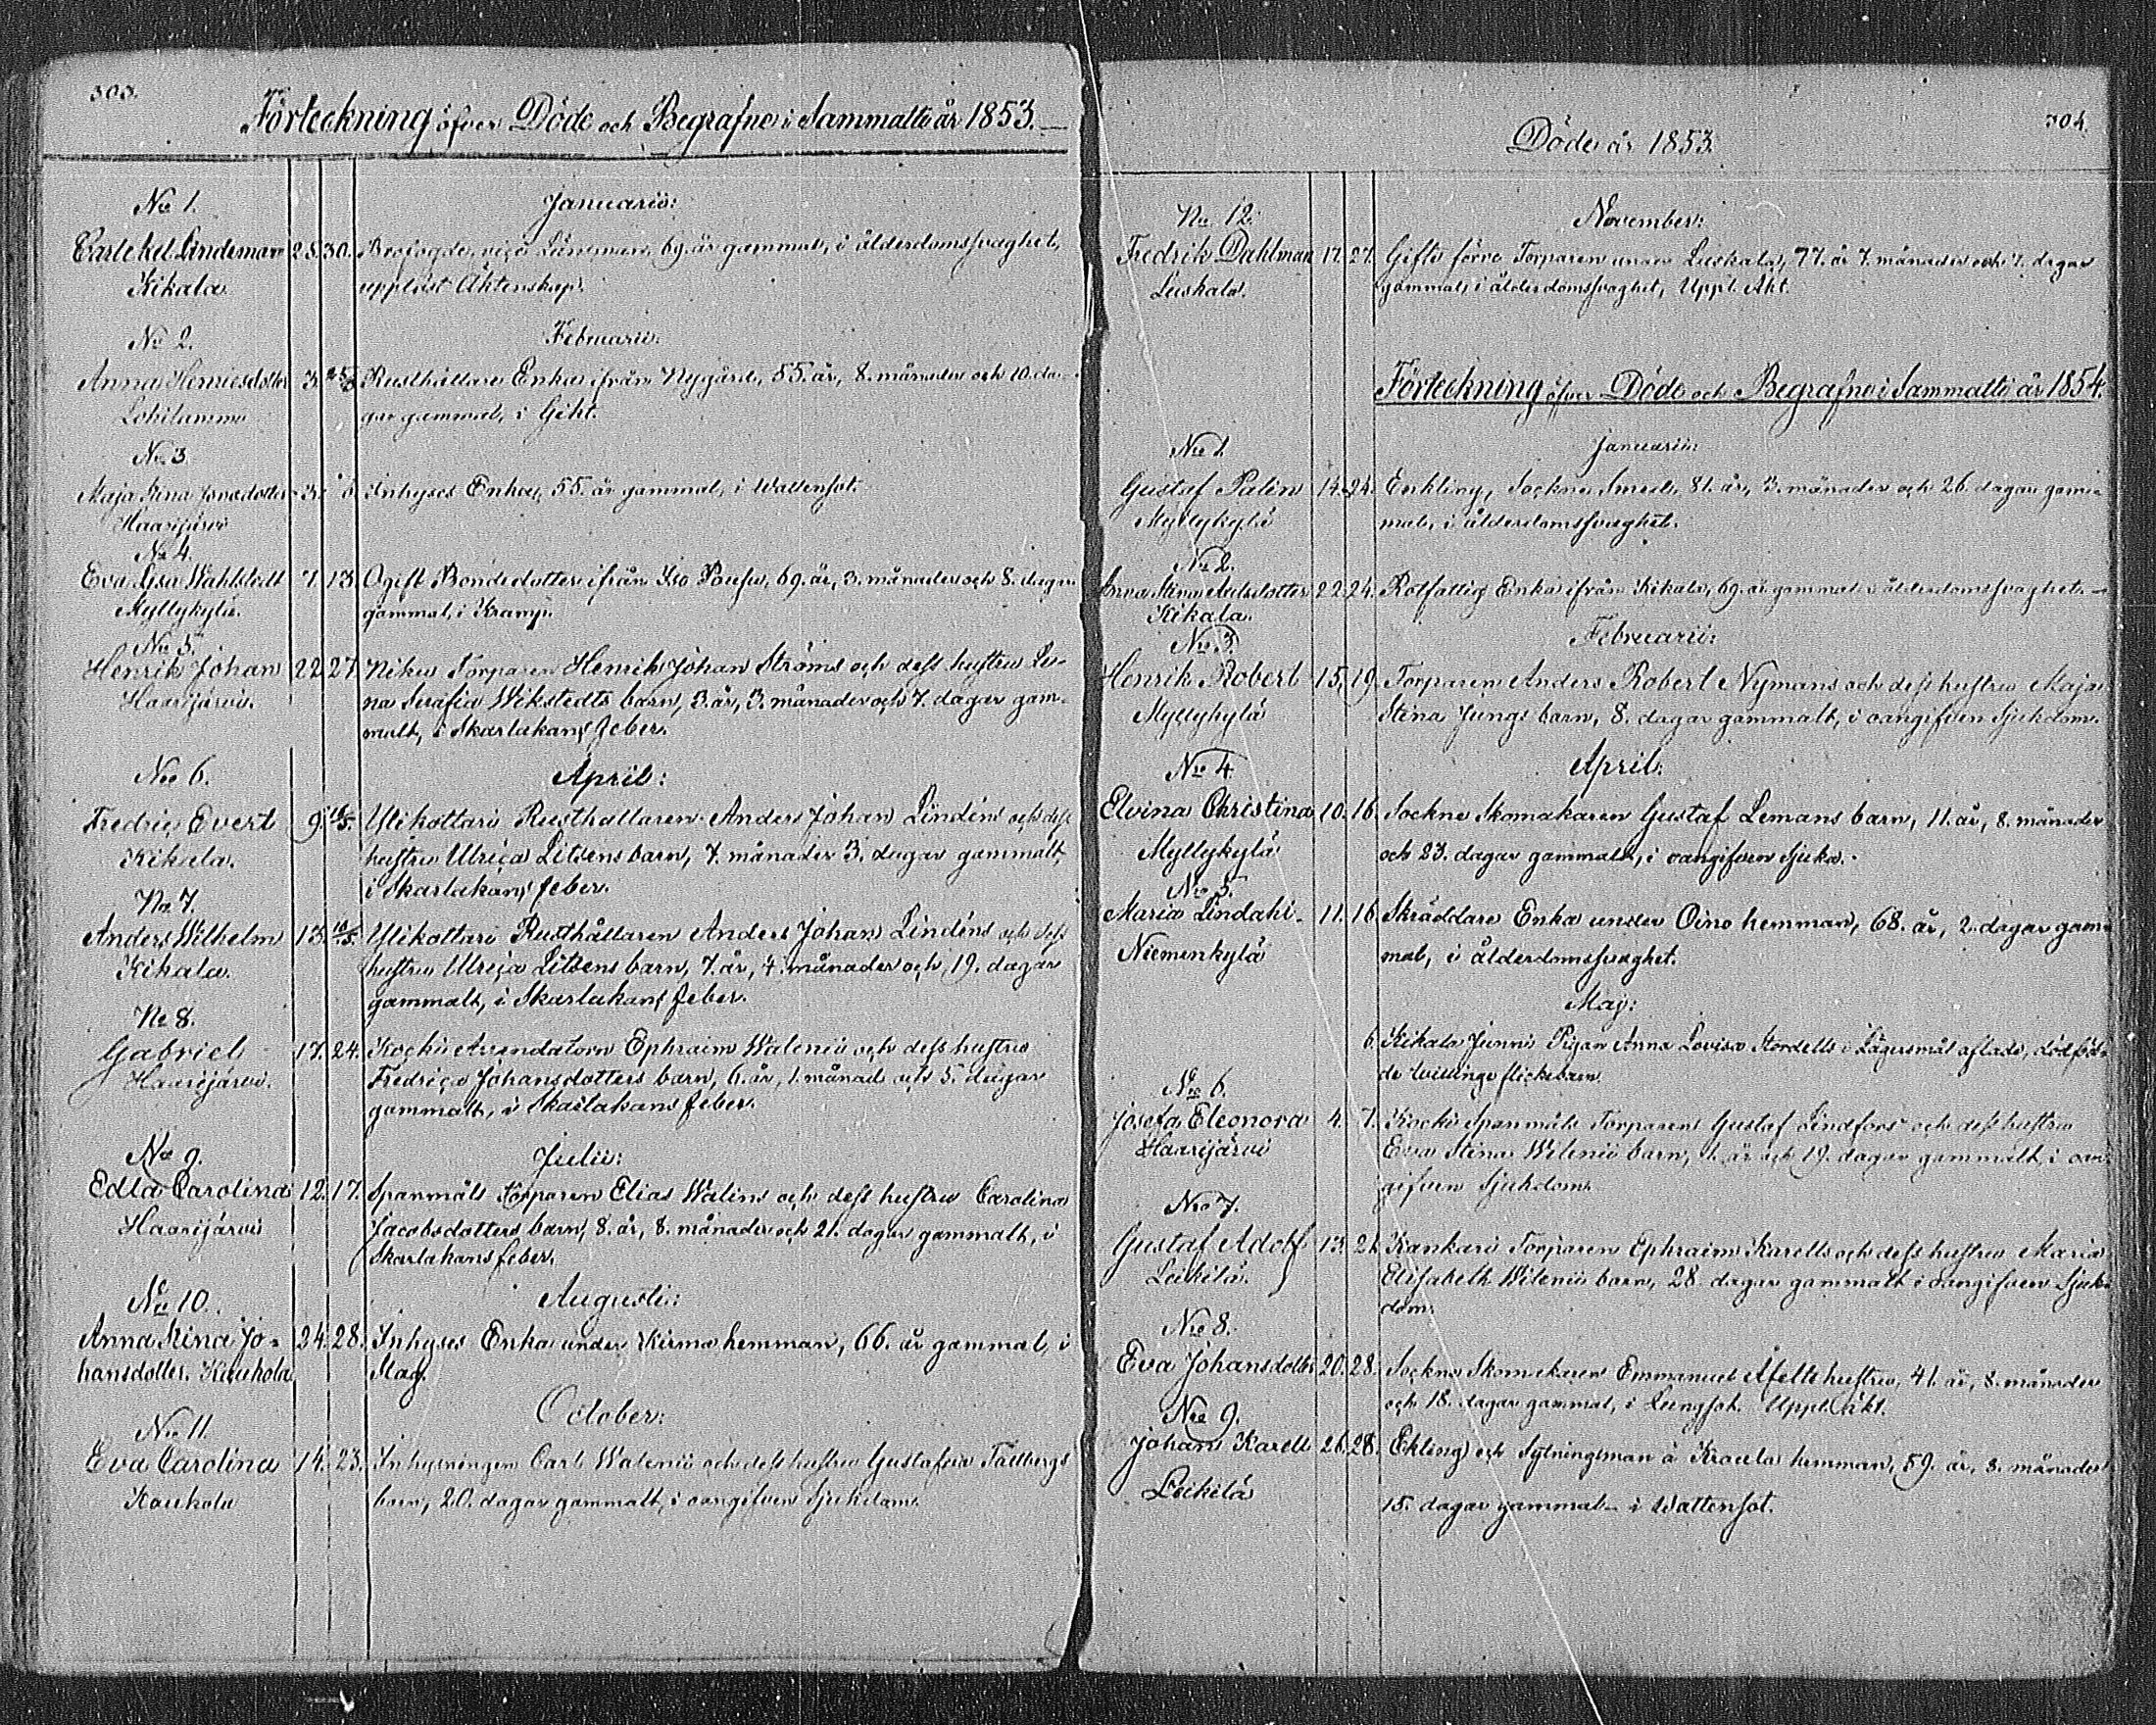 303.
Förteckning öfver Döde och Begrafne i Sammatti år 1853.
No 1.
Januarii:
Carl Lindeman 28. 30. Brofogde, vice Länsman, 69. år gammal, i ålderdomssvaghet,
Kikala upplöst Äktenskap.
No 2.
Februarii.
Anna Henricsdotter 3. Rusthållare Enka ifrån Nygård, 55. år, 8. månader och 10. da-
Lohilammi gar gammal, i Gikt.
No 3.
Maja Stina 3. 6. Inhyses Enka, 55. år gammal, i Wattensot.
Haarijärvi
No 4.
Eva Lisa Wahlstedt 7. 13. Ogift Bondedotter ifrån Iso 69. år, 3. månader och 8. dagar
Myllykylä. gammal, i Kramp.
No 5.
Henrik Johan 22. 27. Nikus Torparen Henrik Johan Ströms och dess hustru Le-
Haarijärvi. na Serafia Wikstedts barn, 3. år, 3. månader och 7. dagar gam-
malt, i Skarlakans feber.
No 6.
April:
Fredric Evert 9. Ylikottari Rusthållaren Anders Johan Lindéns och dess
Kikala. hustru Ulrica Litsens barn, 7. månader 3. dagar gammalt,
i Skarlakans feber.
No 7.
Anders Wilhelm 13. Ylikottari Rusthållaren Anders Johan Lindéns och dess
Kikala. hustru Ulrica Litsens barn, 7. år, 4. månader och 19. dagar
gammalt, i Skarlakans feber.
No 8.
Gabriel 17. 24. Kocki Arendatorn Ephraim Walenii och dess hustru
Haarijärvi. Fredrica Johansdotters barn, 6. år, 1. månad och 5. dagar
gammalt, i Skarlakans feber.
No 9.
Julii:
Edla Carolina 12. 17. Spanmäls Torparen Elias Walins och dess hustru Carolina
Haarijärvi Jacobsdotters barn, 8. år, 8. månader och 21. dagar gammalt, i
Skarlakans feber.
No 10.
Augusti:
Anna Stina Jo- 24. 28. Inhyses Enka under Kirmo hemman, 66. år gammal, i
hansdotter. Kaukola Slag.
October:
No 11.
Eva Carolina 14. 23. Inhysningen Carl Walenii och dess hustru Gustafva Tallbergs
Kaukola barn, 20. dagar gammalt, i oangifven Sjukdom.
304.
Döde år 1853.
No 12.
November:
Fredrik Dahlman 17. 27. Gifte förre Torparen under Luskala, 77. år 7. månader och 7. dagar
Luskala. gammal, i ålderdomssvaghet, Uppl. Äkt.
Förteckning öfver Döde och Begrafne i Sammatti år 1854.
No 1.
Januarii:
Gustaf Palin 14. 24. Enkling, Sockne Smed, 81. år, 3. månader och 26. dagar gam-
Myllykylä mal, i ålderdomssvaghet.
No 2.
Anna Stina 22. 24. Rotfattig Enka ifrån Kikala, 69. år gammal i ålderdomssvaghet.
Kikala.
No 3.
Februarii:
Henrik Robert 15. 19. Torparen Anders Robert Nymans och dess hustru Maja
Myllykylä Stina Jungs barn, 8. dagar gammalt, i oangifven Sjukdom.
No 4.
April:
Elvina Christina 10. 16. Sockne Skomakaren Gustaf Lemans barn, 11. år, 8. månader
Myllykylä och 23. dagar gammalt, i oangifven Sjuka.
No 5.
Maria Lindahl 11. 16. Skräddare Enka under Oino hemman, 68. år, 2. dagar gam-
Niemenkylä mal, i ålderdomssvaghet.
Maj:
6. Kikala Junni Pigan Anna Lovisa Nordells i Lägersmål aflade, dödföd-
de tvillinge flickebarn.
No 6.
Josefa Eleonora 4. 7. Kocki Spanmäls Torparens Gustaf Lindfors och dess hustru
Haarijärvi Eva Stina Wilenii barn, 1. år och 19. dagar gammalt, i oan-
gifven Sjukdom.
No 7.
Gustaf Adolf 13. 21. Kankari Torparen Ephraim Karells och dess hustru Maria
Leikilä. Elisabeth Wilenii barn, 28. dagar gammalt i oangifven Sjuk-
dom.
No 8.
Eva Johansdotter 20. 28. Sockne Skomakaren Emmanuel hustru, 41. år, 8. månader
och 18. dagar gammal, i Lungsot. Uppl. äkt.
No 9.
Johan Karell 26. 28. Enkling och Sytningsman å Kraula hemman, 59. år, 3. månader
Leikilä 15. dagar gammal i Wattensot.